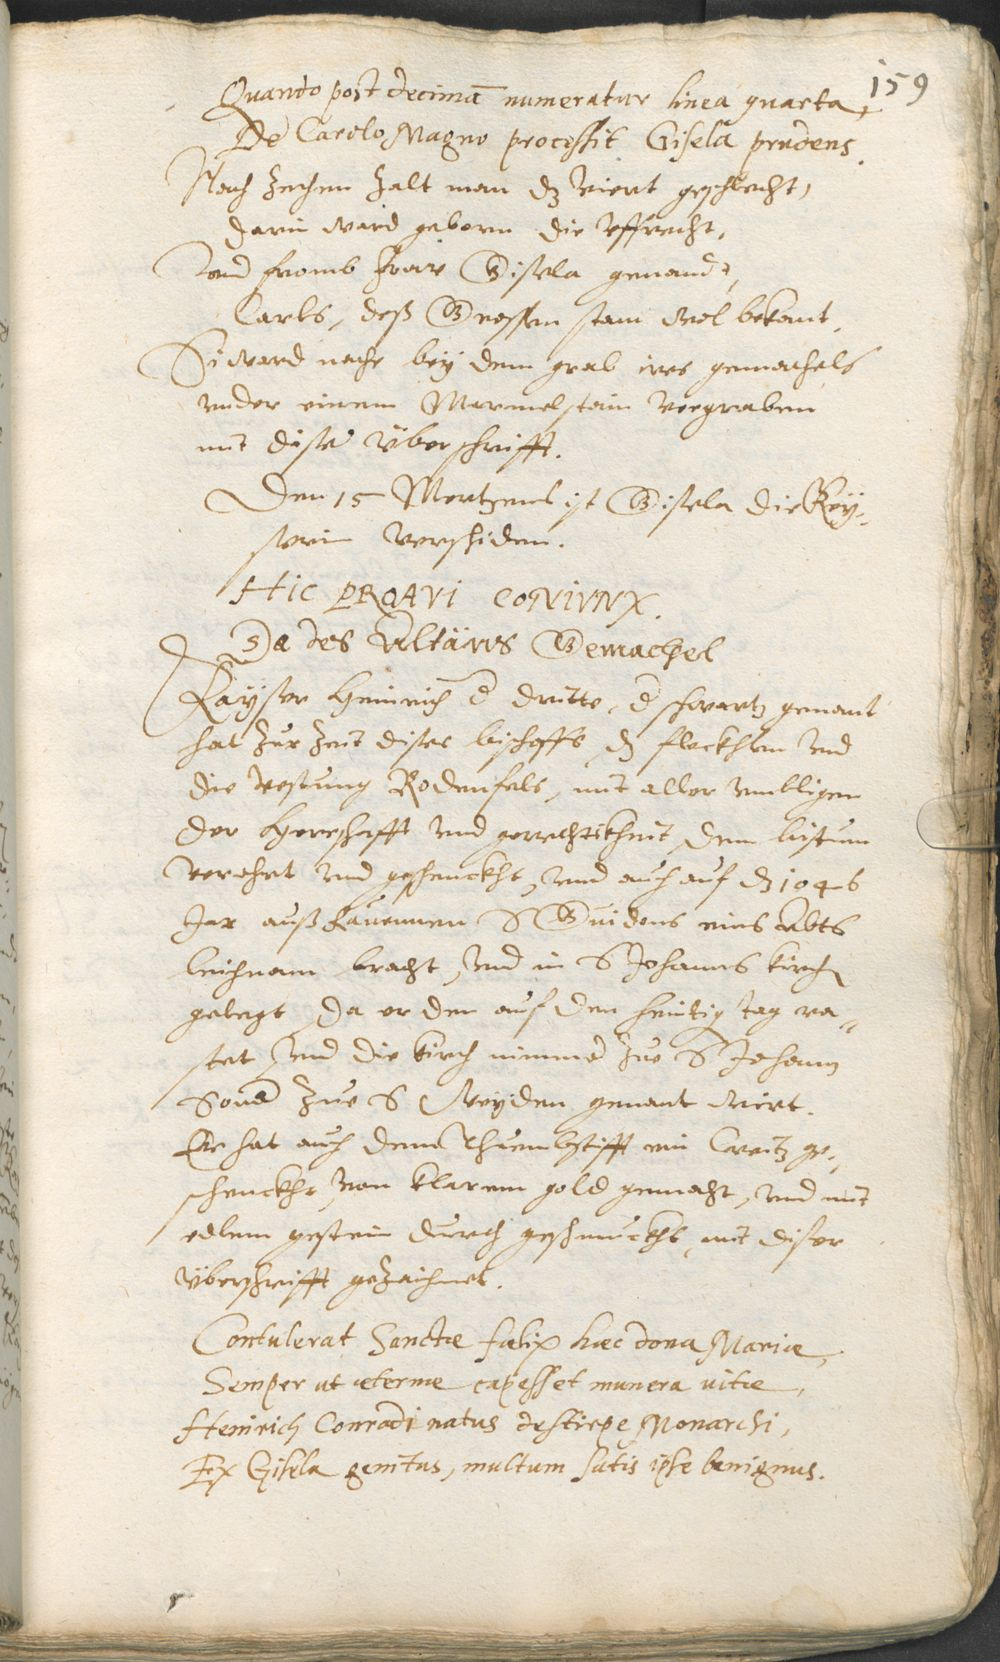 159
Quando post decimā numeratur linea quarta,
De Carolo Magno processit Gisela prudens.
Nach zechen zalt man dz viert geschlecht,
darin ward geborn die uffrecht,
Vnd fromb Fraw Gisela genand,
Carls, deß Grossen stam wol bekant.
Si ward nahe bey dem grab ires gemachels
vnder einem Marmelstain vergraben
mit diser Überschrifft.
Den 15 Mertzens ist Gisela die Key-
serin verschiden.
HIC PROAVI CONIVNX.
Da des Vltänis Gemachel
Kayser Heinrich d dritte, d schwartz genant
hat zur zeit dises bischoffs dz fleckhen vnd
die vestung Rodenfels, mit aller umbligen
der Herrschafft vnd gerechtikheit dem bistum
verehrt vnd geschenckht, vnd auch auf dz 1046
Jar auß Rauennen S Guidons eins Abts
leichnam bracht, vnd in S Johanns kirch
gelegt, da er den auf den heutig tag ra-
stet, vnd die kirch nimmer zue S Johann
Sonder zue S Weyden genant wirt.
Er hat auch dem Thuembstifft ein Creitz ge-
schenckht, von klarem gold gemacht, vnd mit
edlem gestein durch geschmuckht, mit diser
Überschrifft gezaichnet.
Contulerat Sanctæ fælix hæc dona Mariæ,
Semper ut æternæ capesset munera vitæ,
Heinrich Conradi natus de stirpe Monarchi,
Ex Gisela genitus, multum satis ipse benignus.